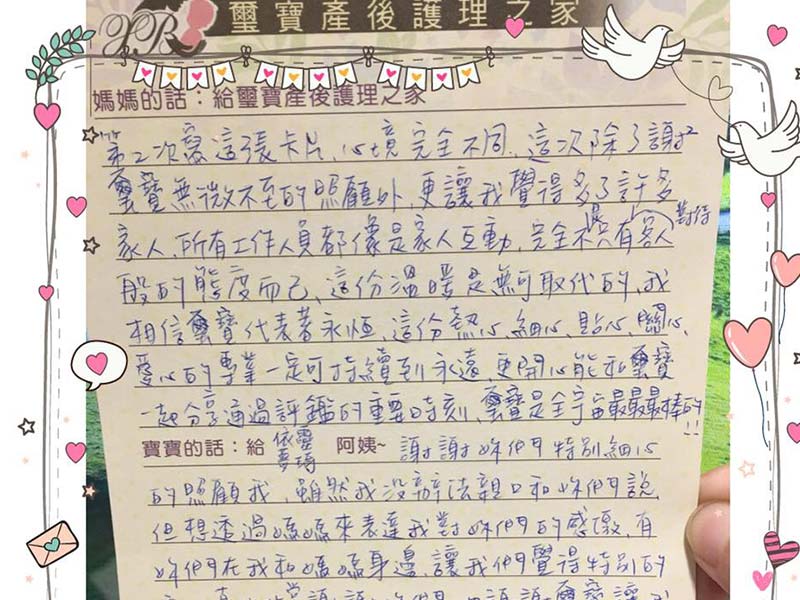 YB 璽寶產後護理之家
媽媽的話：給璽寶產後護理之家
第2次寫這張卡片，心境完全不同，這次除了謝謝
璽寶無微不至的照顧外，更讓我覺得多了許多
家人，所有工作人員都像是家人互動，完全不是只有客人對待
般的態度而已，這份溫暖是無可取代的，我
相信璽寶代表著永恆，這份熱心、細心、貼心、關心、
愛心的專業一定可持續到永遠，更開心能和璽寶
一起分享通過評鑑的重要時刻，璽寶是全宇宙最最最棒的!!
寶寶的話：給 依靈 阿姨~ 謝謝妳們特別細心
的照顧我，雖然我沒辦法親口和妳們說，
但想透過媽媽來表達我對妳們的感激，有
妳們在我和媽媽身邊，讓我們覺得特別的